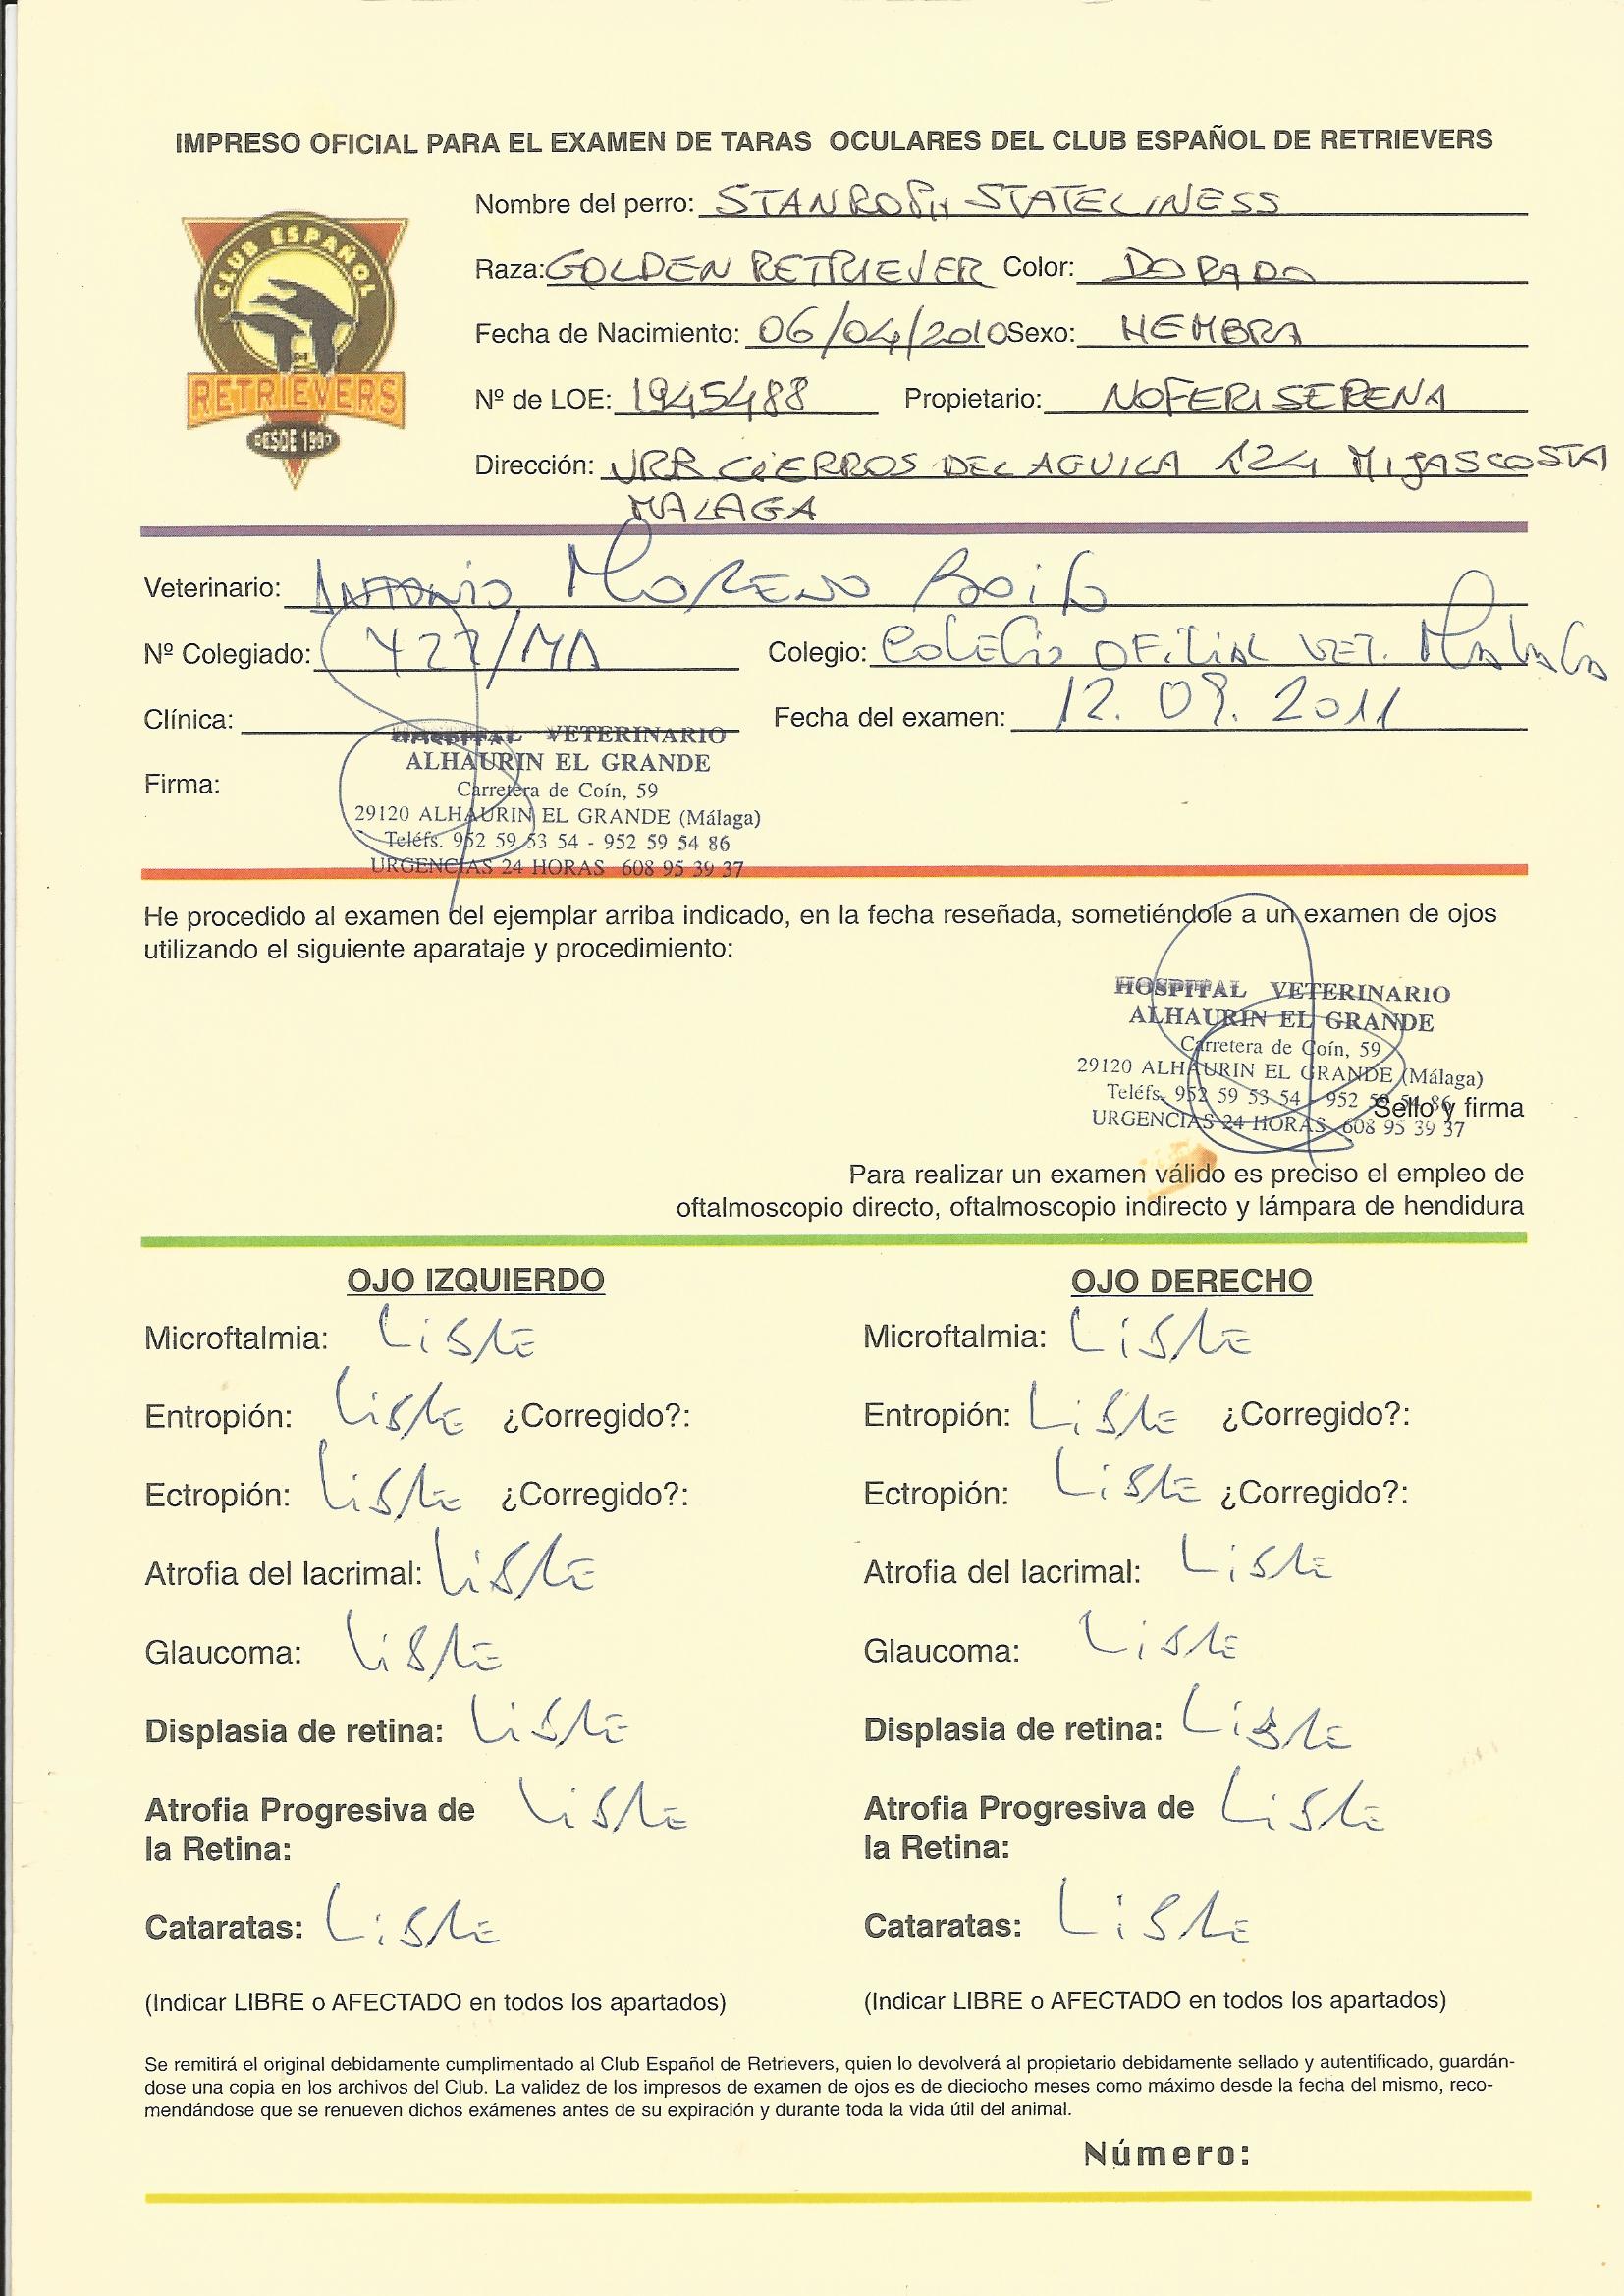 IMPRESO OFICIAL PARA EL EXAMEN DE TARAS OCULARES DEL CLUB ESPAÑOL DE RETRIEVERS
CLUB ESPAÑOL
DE
RETRIEVERS
DESDE 1997
Nombre del perro: STANROPH STATELINESS
Raza: GOLDEN RETRIEVER Color: DORADO
Fecha de Nacimiento: 06/04/2010 Sexo: HEMBRA
Nº de LOE: 1945488 Propietario: NOFERI SERENA
Dirección: URB. CIERROS DEL AGUILA 124 MIJAS COSTA
MALAGA
Veterinario: ANTONIO MORENO
Nº Colegiado: 427/MA Colegio: COLEGIO OFICIAL VET. MALAGA
Clínica: Fecha del examen: 12.09.2011
HOSPITAL VETERINARIO
ALHAURIN EL GRANDE
Firma:
Carretera de Coín, 59
29120 ALHAURIN EL GRANDE (Málaga)
Teléfs. 952 59 53 54 - 952 59 54 86
URGENCIAS 24 HORAS 608 95 39 37
He procedido al examen del ejemplar arriba indicado, en la fecha reseñada, sometiéndole a un examen de ojos
utilizando el siguiente aparataje y procedimiento:
HOSPITAL VETERINARIO
ALHAURIN EL GRANDE
Carretera de Coín, 59
29120 ALHAURIN EL GRANDE (Málaga)
Teléfs. 952 59 53 54 - 952 59 54 86
Sello y firma
URGENCIAS 24 HORAS 608 95 39 37
Para realizar un examen válido es preciso el empleo de
oftalmoscopio directo, oftalmoscopio indirecto y lámpara de hendidura
OJO IZQUIERDO
Microftalmia: LIBRE
Entropión: LIBRE ¿Corregido?:
Ectropión: LIBRE ¿Corregido?:
Atrofia del lacrimal: LIBRE
Glaucoma: LIBRE
Displasia de retina: LIBRE
Atrofia Progresiva de LIBRE
la Retina:
Cataratas: LIBRE
(Indicar LIBRE o AFECTADO en todos los apartados)
OJO DERECHO
Microftalmia: LIBRE
Entropión: LIBRE ¿Corregido?:
Ectropión: LIBRE ¿Corregido?:
Atrofia del lacrimal: LIBRE
Glaucoma: LIBRE
Displasia de retina: LIBRE
Atrofia Progresiva de LIBRE
la Retina:
Cataratas: LIBRE
(Indicar LIBRE o AFECTADO en todos los apartados)
Se remitirá el original debidamente cumplimentado al Club Español de Retrievers, quien lo devolverá al propietario debidamente sellado y autentificado, guardán-
dose una copia en los archivos del Club. La validez de los impresos de examen de ojos es de dieciocho meses como máximo desde la fecha del mismo, reco-
mendándose que se renueven dichos exámenes antes de su expiración y durante toda la vida útil del animal.
Número: